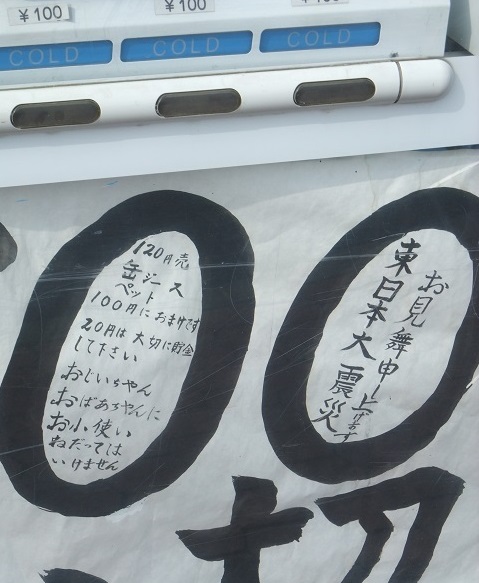 ¥100
¥100
¥100
COLD
COLD
COLD
120円売
缶ジュース
ペット
100円におまけです
20円は大切に貯金
して下さい
おじいちゃん
おばあちゃんに
お小使い
ねだっては
いけません
お見舞申し上げます
東日本大震災
切